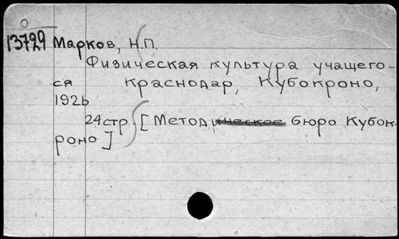 13729 Марков, Н.П.
Физическая культура учащего-
ся Краснодар, Кубокроно,
1926
24стр. [Метод. бюро Кубок-
роно]